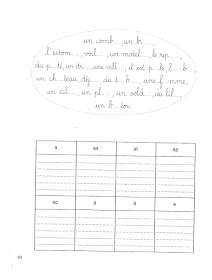 un comb..., un br...,
l'estom..., voil..., un matel... le rep...,
du p...té, un dr..., une vill..., il est p...le, l...b...,
un ch...teau, déj..., du t...b..., une f...mme,
un écl..., un pl..., un sold..., au lil...,
un b...ton
a as at ap
ac à â e
60